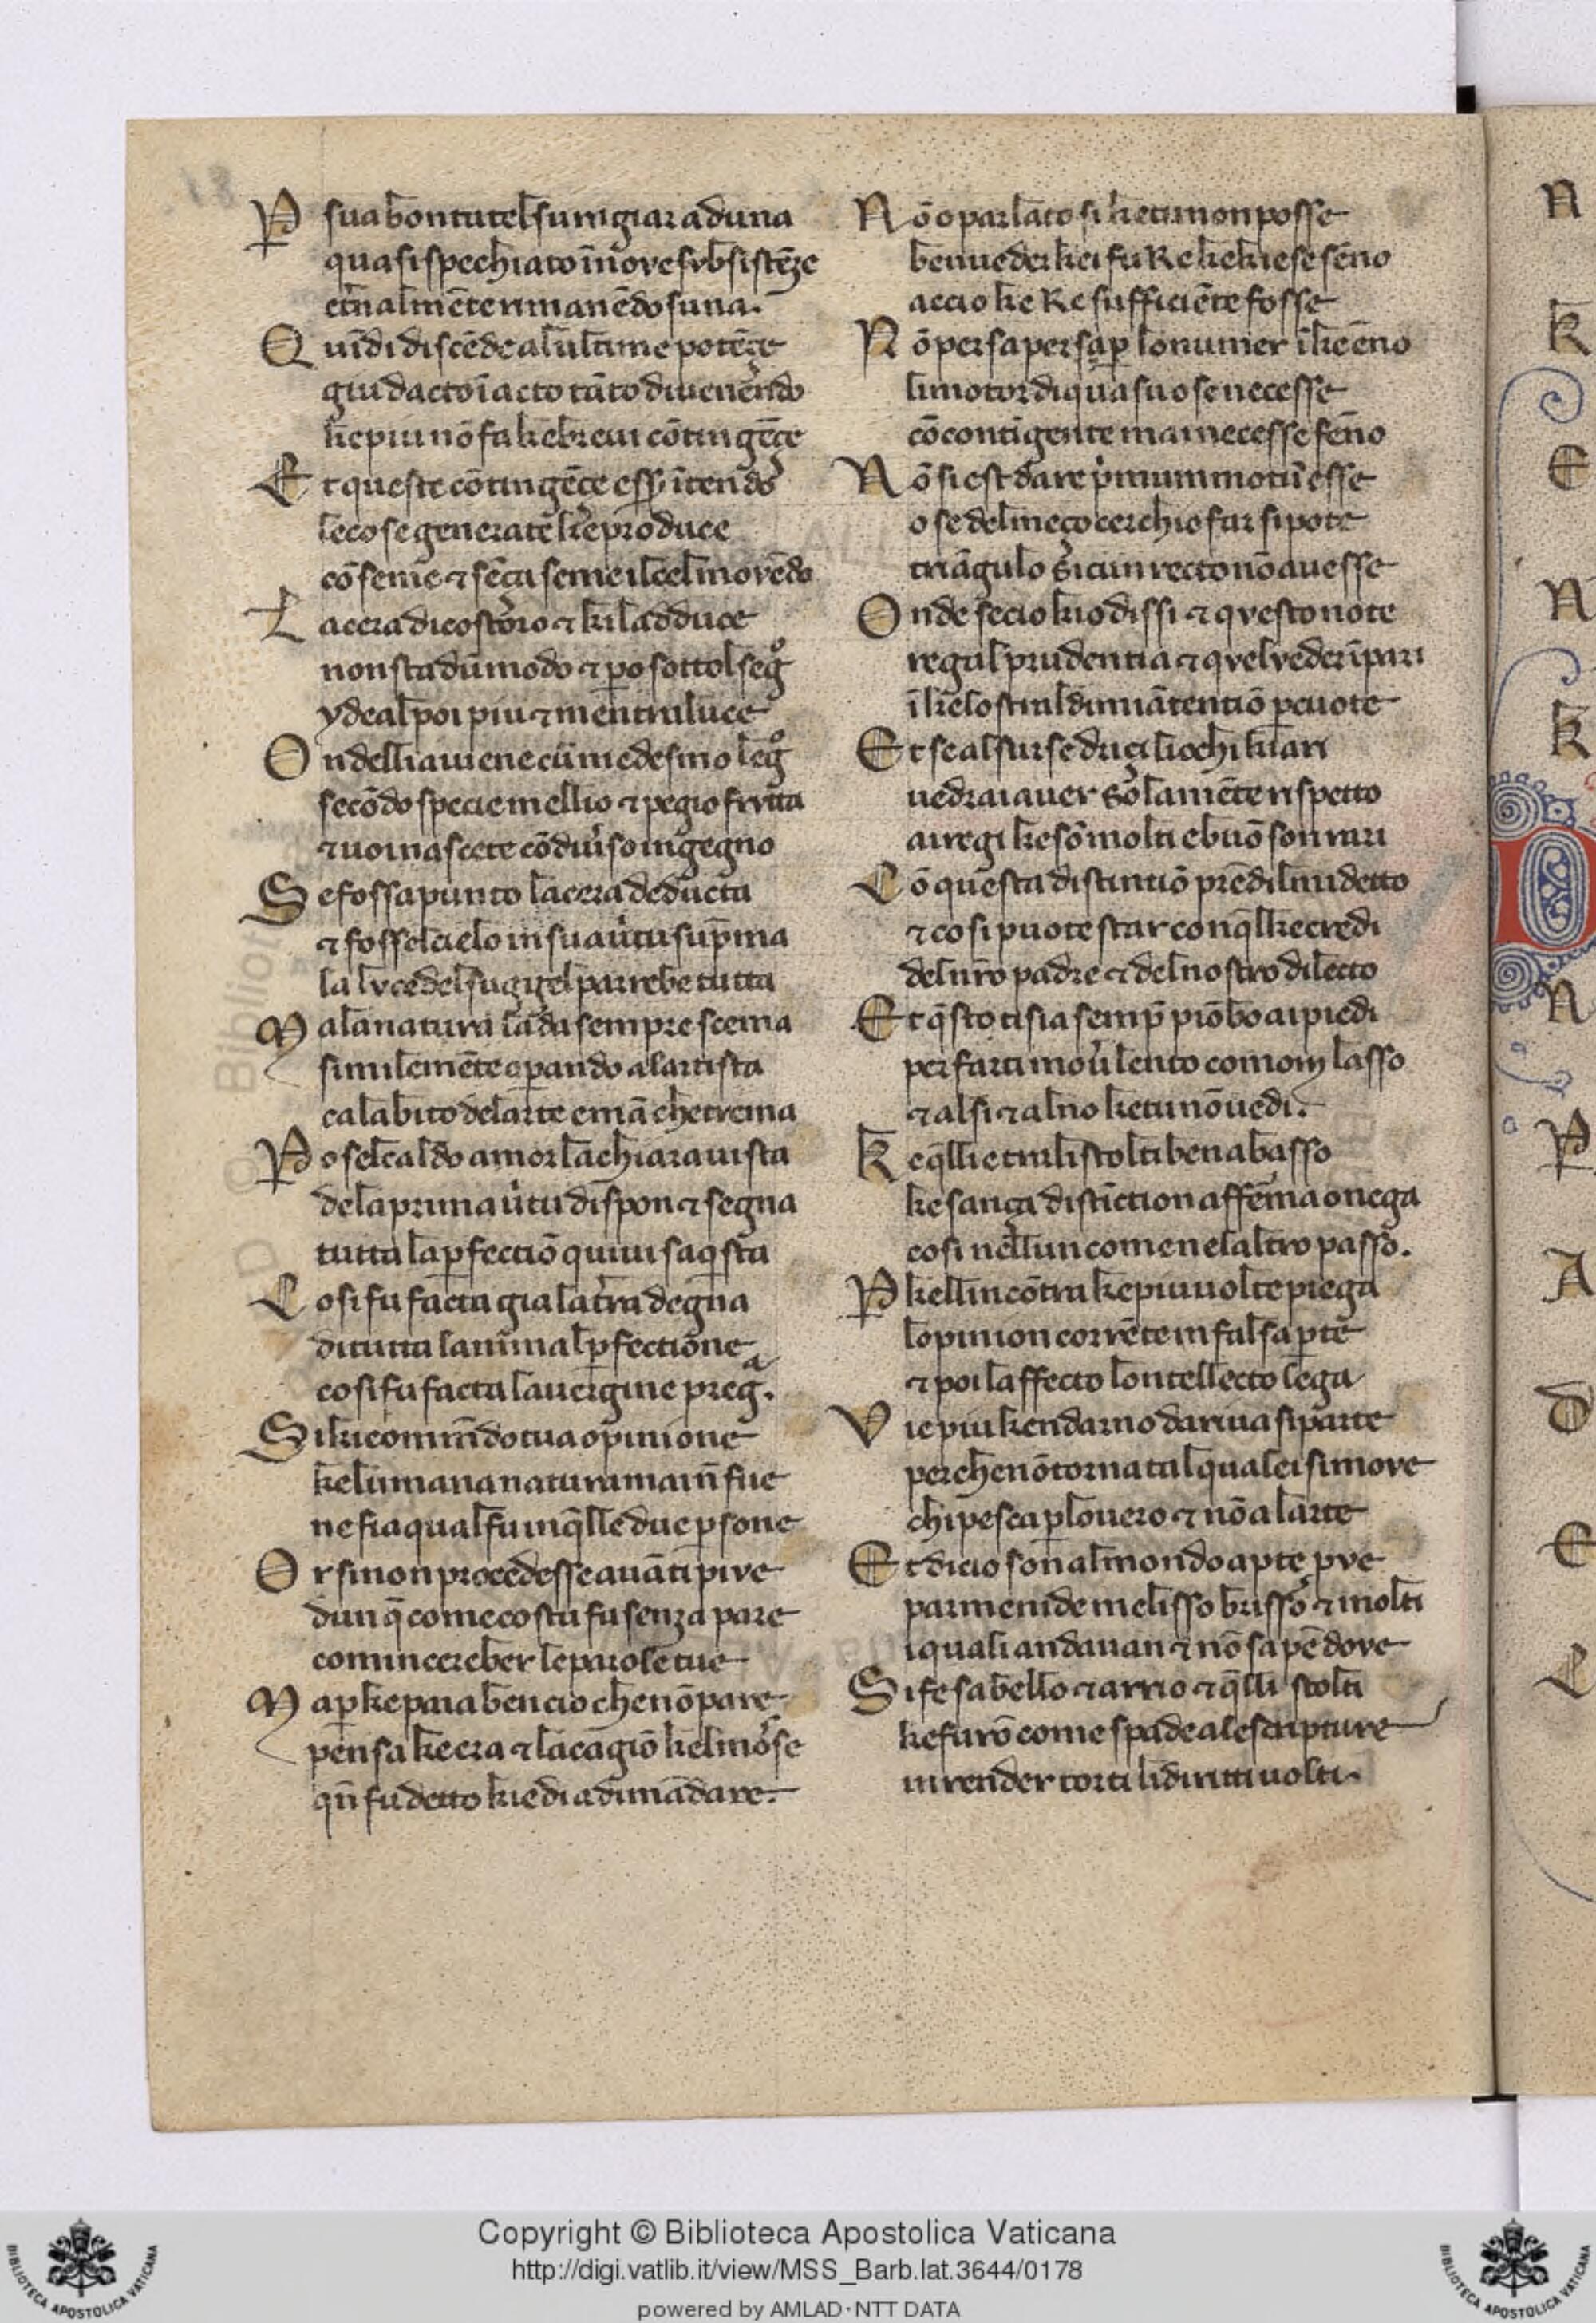 P sua bontutel sum giar aduna
quasi spechiato ī nove subsistēze
etn̄almēte rimanēdo suna.
Quīdi discēde al ultime potēçe
giu dacto ī acto tāto divenendo
ke piu nō fa ke brevi cōtingēçe
Et queste cōtingēçe esŝ ītendo
le cose generate ke produce
cō seme ⁊ sēça seme il ciel movēdo
La cera di costoro ⁊ ki la dduce
non sta dū modo ⁊ po sottol segͦ
ydeal poi piu ⁊ men traluce
Ondelli aviene cūn medesmo legͦ
secōdo specie mellio ⁊ pegio frutta
⁊ voi nascete cō diverso ingegno
Se foss apunto la cera deducta
⁊ fosse l cielo in sua v̓tu sup̄ma
la luce del suggiel parrebe tutta
Ma la natura la da sempre scema
similemēte operando alartista
ca labito del arte e mā che trema
Po se l caldo amor la chiara vista
de la prima v̓tu dispon ⁊ segna
tutta la perfectiō quivi saq̄sta
Cosi fu facta gia la tr̄a degna
di tutta lanimal perfectione
cosi fu facta la vergine pregᵃ.
Si kio commēdo tua opinione
ke lumana natura mai n̄ fue
ne fia qual fu in q̄lle due persone
Or si non procedesse avāti piue
dunq̄ come costu fu senza pare
comincereber le parole tue
Ma per ke paia ben cio che nō pare
pensa ke era ⁊ la cagiō ke l mosse
qn̄ fu detto kiedi a dimādare.
Nō o parlato si ke tu non posse
ben veder kei fu Re ke kiese sēno
accio ke Re sufficiēte fosse
Nō per saper lo numer ī ke ēno
li motor di qua suo se necesse
cō contigente mai necesse fēno
Nō si est dare p̓mum motū esse
o se del meço cerchio far si pote
triāgulo si cun recto nō avesse
Onde se cio kio dissi ⁊ questo note
regal prudentia ⁊ quel veder īpari
ī ke lo stral di mia tentiō percuote
Et se al surse driçi li ochi kiari
vedrai aver solamēte rispetto
ai regi ke sō molti e i buō son rari
Cō questa distintiō prēdi l mi detto
⁊ cosi puote star con q̄l ke credi
del nr̄o padre ⁊ del nostro dilecto
Et q̄sto ti sia semp̄ piōbo ai piedi
per farti mov̓ lento com om lasso
⁊ al si ⁊ al no ke tu nō vedi.
Ke q̄lli e tra li stolti ben abasso
ke sança distīction afferma o nega
cosi nellun come nel altro passo.
P kellincōtra ke piu volte piega
lopinion corrēte in falsa parte
⁊ poi laffecto lontellecto lega
Vie piu kendarno da riva si parte
perche nō torna tal qual ei si move
chi pesca per lo vero ⁊ nō a larte
Et di cio son al mondo apte prve
parmenide melisso brisso ⁊ molti
i quali andavan ⁊ nō sapē dove
Si fe sabello ⁊ arrio ⁊ q̄lli stolti
ke furō come spade a le scripture
in render torti li diritti volti.
Copyright © Biblioteca Apostolica Vaticana
http://digi.vatlib.it/view/MSS_Barb.lat.3644/0178
powered by AMLAD·NTT DATA